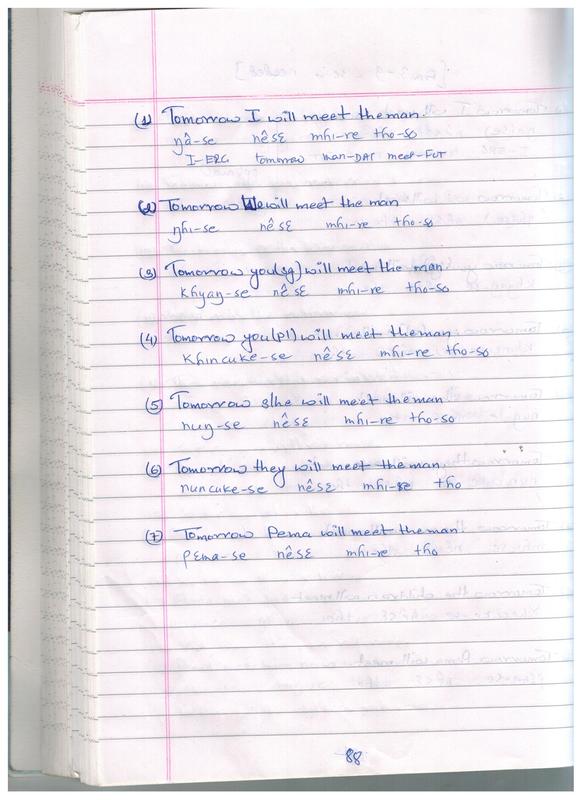 (1) Tomorrow I will meet the man.
ŋâ-se nêsɛ mhi-re tho-so
I-ERG tomorrow man-DAT meet-FUT
(2) Tomorrow We will meet the man
ŋhi-se nêsɛ mhi-re tho-so
(3) Tomorrow you(sg) will meet the man
khyaŋ-se nêsɛ mhi-re tho-so
(4) Tomorrow you(pl) will meet the man.
khincuke-se nêsɛ mhi-re tho-so
(5) Tomorrow s/he will meet the man
huŋ-se nêsɛ mhi-re tho-so
(6) Tomorrow they will meet the man.
huncuke-se nêsɛ mhi-re tho
(7) Tomorrow Pema will meet the man.
pɛma-se nêsɛ mhi-re tho
88